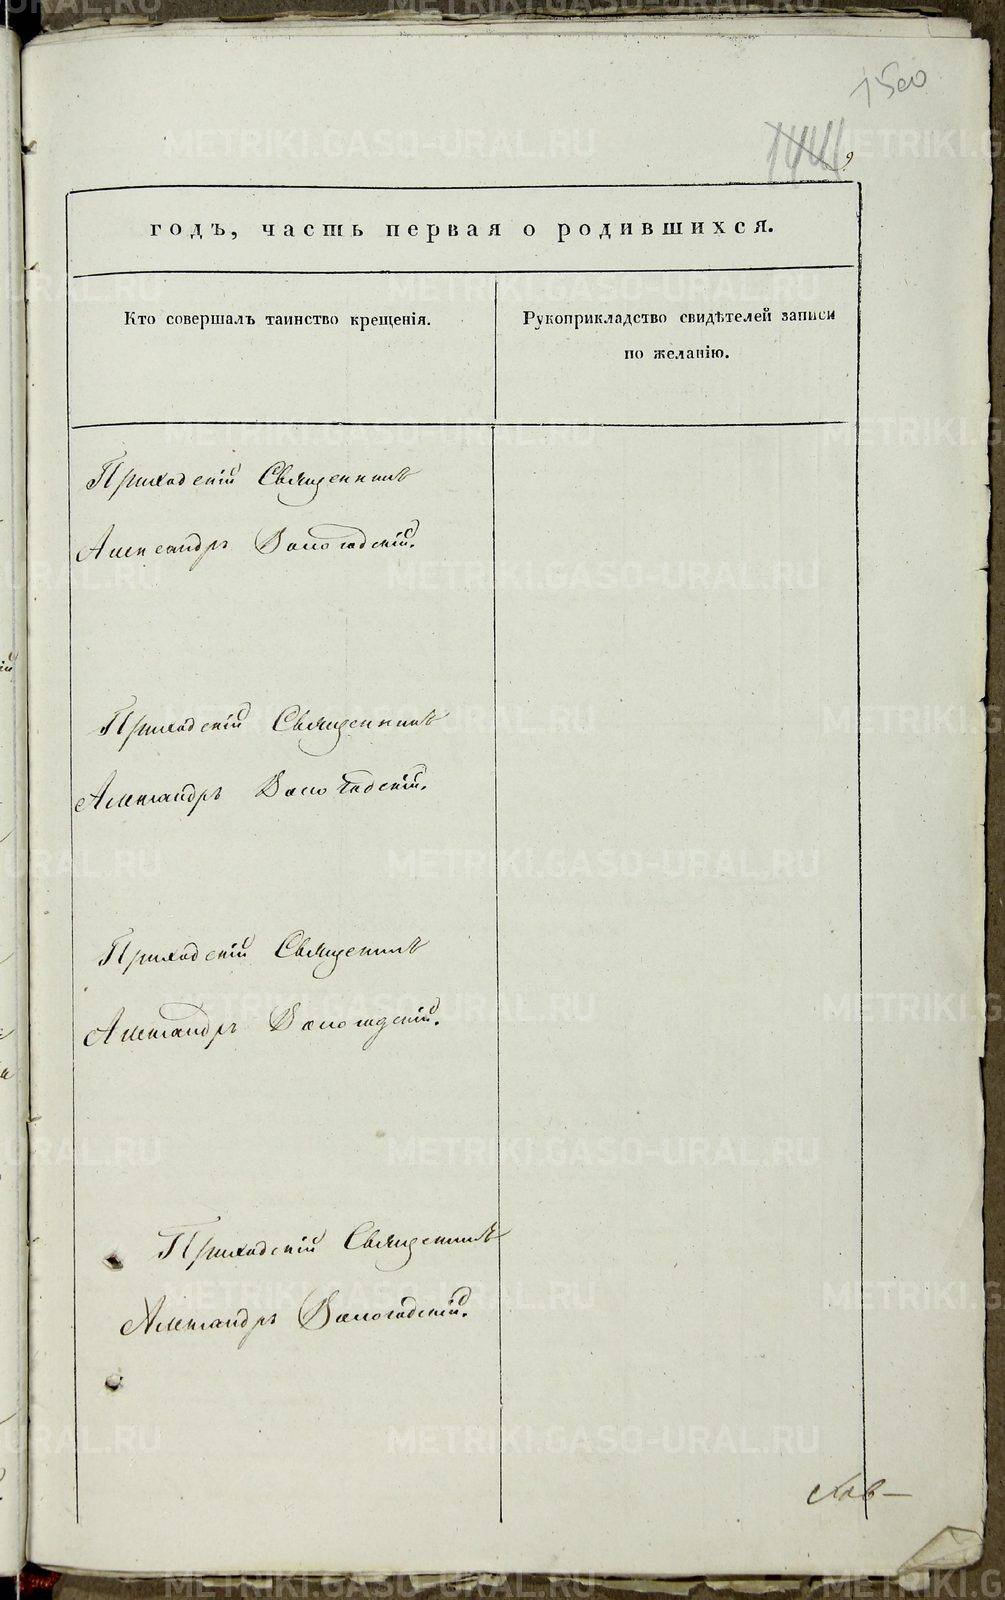 1500
годъ, часть первая о родившихся.
Кто совершалъ таинство крещенія.
Рукоприкладство свидѣтелей записи
по желанію.
Приходскій Священникъ
Александръ Вологодскій.
Приходскій Священникъ
Александръ Вологодскій.
Приходскій Священникъ
Александръ Вологодскій.
Приходскій Священникъ
Александръ Вологодскій.
METRIKI.GASO-URAL.RU